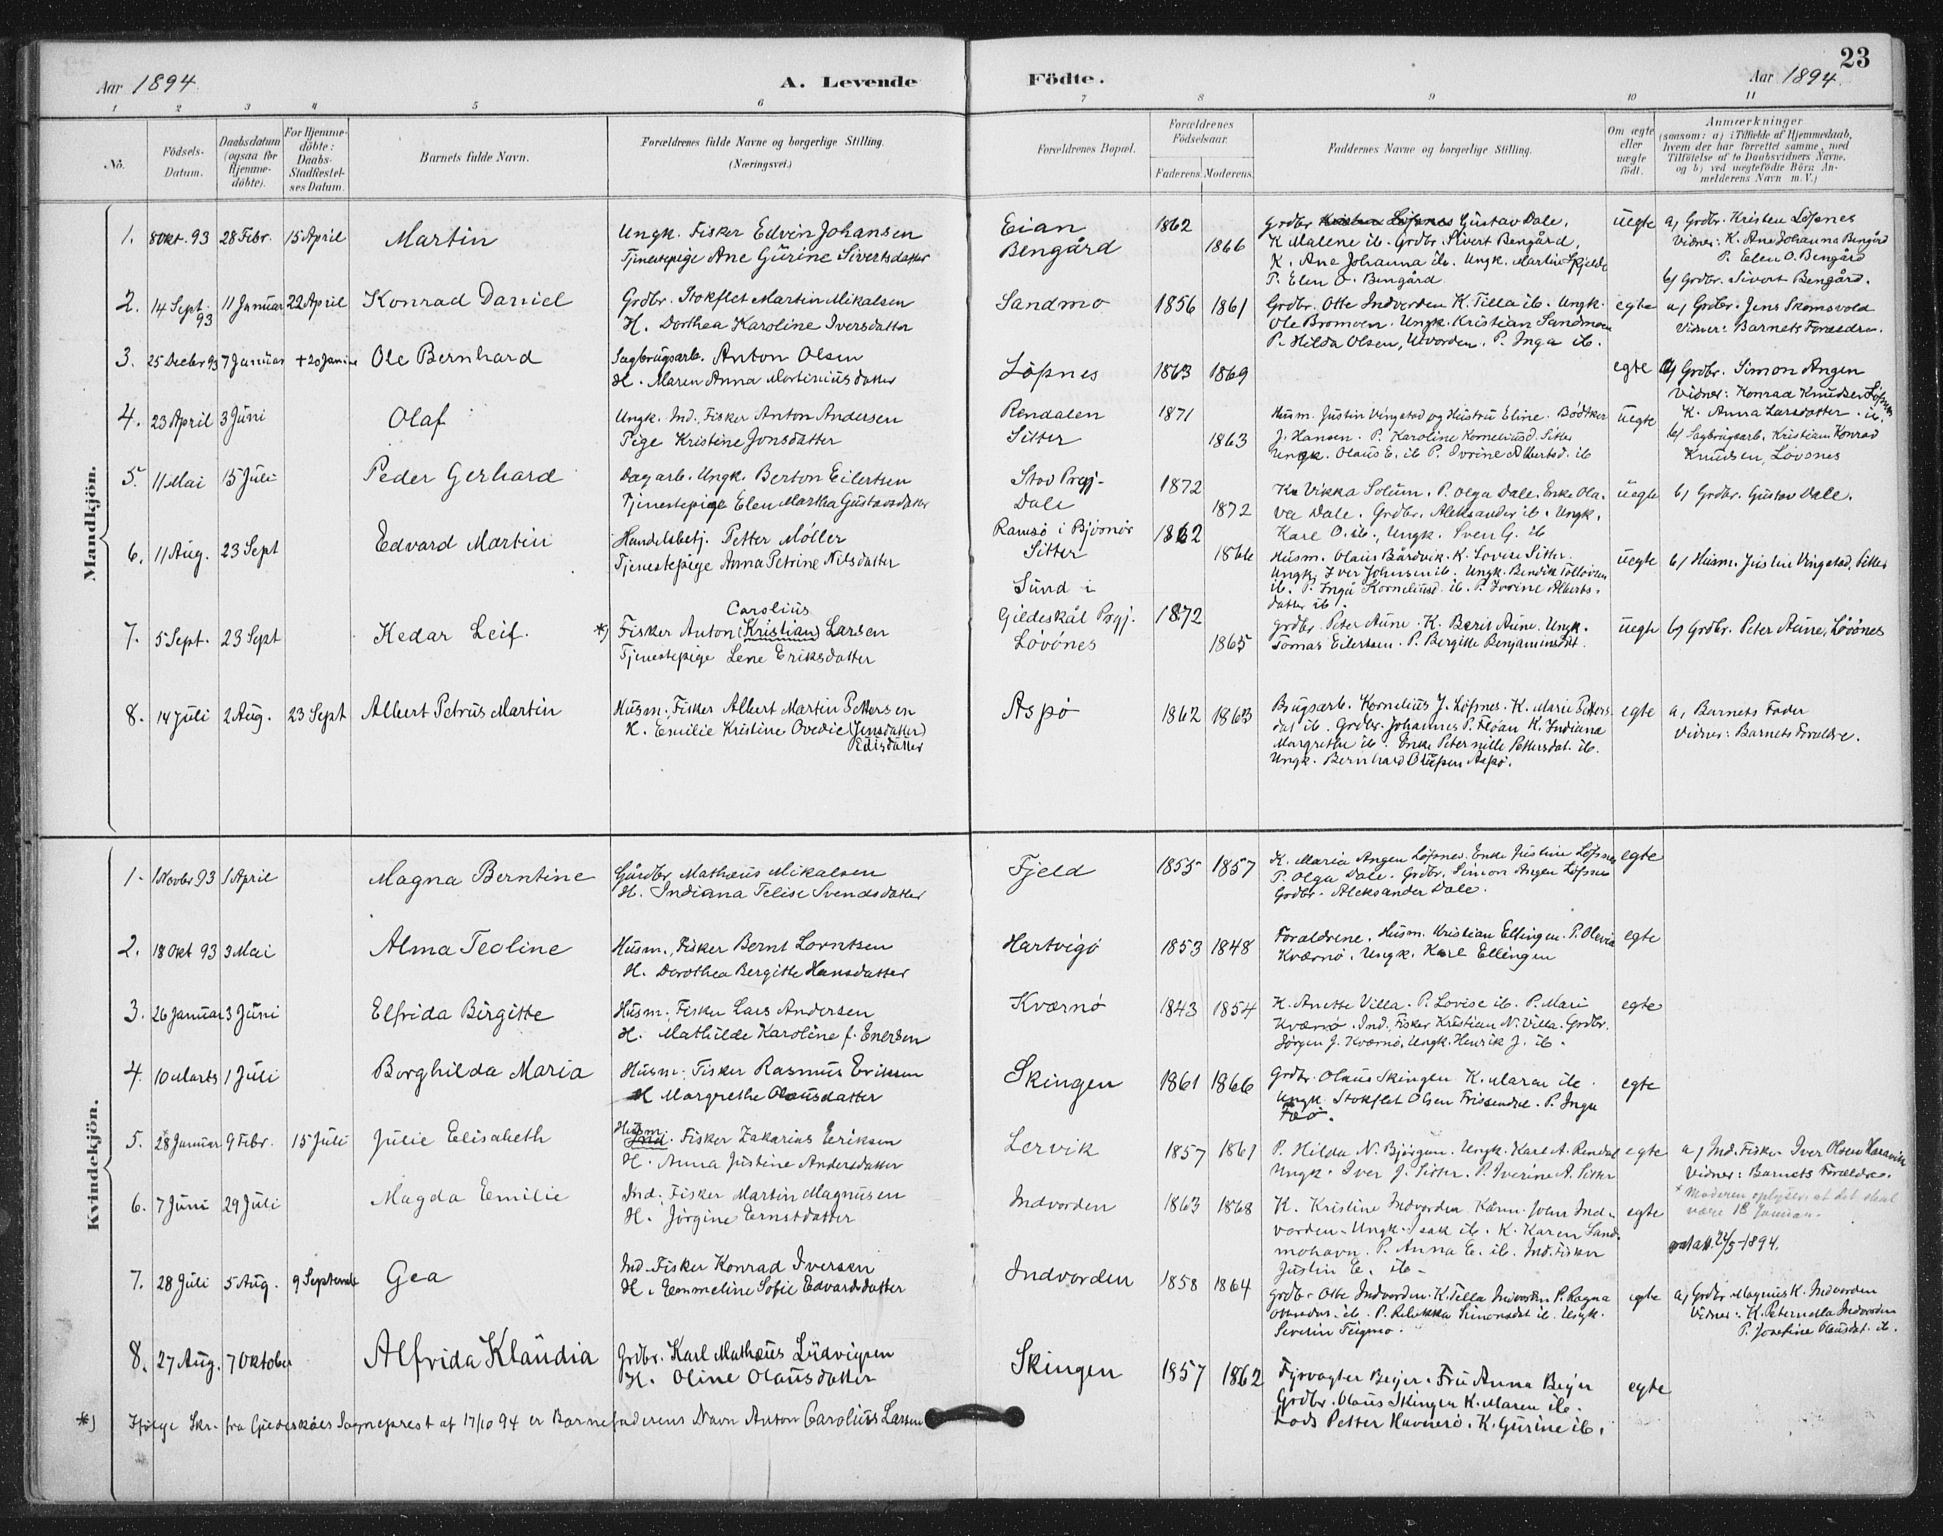 23
Aar 1894.
A. Levende Födte.
Aar 1894.
1 2 3 4 5 6 7 8 9 10 11
No.
Födsels-Datum.
Daabsdatum (ogsaa for Hjemme-döbte).
For Hjemme-döbte: Daabs-Stadfæstel-ses Datum.
Barnets fulde Navn.
Forældrenes fulde Navne og borgerlige Stilling.
(Næringsvei.)
Forældrenes Bopæl.
Forældrenes Födselsaar.
Faderens. Moderens.
Faddernes Navne og borgerlige Stilling.
Om ægte eller uægte födt.
Anmærkninger
(saasom: a) i Tilfælde af Hjemmedaab, hvem der har forrettet samme, med Tilföielse af to Daabsvidners Navne, og b) ved uægtefödte Börn An-melderens Navn m. V.)
Mandkjön.
1. 8 Okt. 93 28 Febr. 15 April Martin
Ungk. Fisker Edvin Johansen
Tjenestepige Ane Gurine Sivertsdatter
Eian
Bengård
1862
1866
Grdbr. Gustav Dale.
K. Malene ib. Grdbr. Sivert Bengård,
K. Ane Johanna ib. Ungk. Martin
P. Elen O. Bengård
uegte
a) Grdbr. Kristen Löfsnes
Vidner: K. Ane Johanna Bengård
P. Elen O. Bengård
b) Grdbr. Sivert Bengård.
2. 14 Sept. 93 11 Januar 22 April Konrad Daniel
Grdbr. Stokflet Martin Mikalsen
H. Dorthea Karoline Iversdatter
Sandmo
1856 1861
Grdbr. Otte Indvorden K. Tilla ib. Ungk.
Ole Bromoen. Ungk. Kristian Sandmoen
P. Hilda Olsen, Utvorden. P. Inga ib.
egte
a) Grdbr. Jens Skomsvold
Vidner: Barnets Forældre.
3. 25 Decbr 93 7 Januar + 20 Ole Bernhard
Sagbrugsarb. Anton Olsen
H. Maren Anna Martiniusdatter
Löfsnes
1863 1869
egte
a) Grdbr. Simon Angen
Vidner: Konrad Knudsen Löfsnes
K. Anna Larsdatter. ib.
4. 23 April 3 Juni Olaf
Ungk. Ind. Fisker Anton Andersen
Pige Kristine Jonsdatter
Rendalen
Sitter
1871
1863
Husm. Justin Vingstad og Hustru Eline. Bödtker
J. Hansen. P. Karoline Korneliusd. Sitter
Ungk. Olaus E. ib P. Ivrine Albertsd. ib
uegte
b) Sagbrugsarb. Kristian Konrad
Knudsen, Lövsnes
5. 11 Mai 15 Juli Peder Gerhard
Dagarb. Ungk. Berton Eilertsen
Tjenestepige Elen Martha Gustavsdatter
Stov Prgj.
Dale
1872
1872
K. Vikka Solum. P. Olga Dale. Enke Ola-
va Dale. Grdbr. Aleksander ib. Ungk.
Karl O. ib., Ungk. Sven G. ib
uegte
b) Grdbr. Gustav Dale.
6. 11 Aug. 23 Sept Edvard Martin
Handelsbetj. Petter Möller
Tjenestepige Anna Petrine Nilsdatter
Ramsö i Bjørnör
Sitter
1862
1866
Husm. Olaus Bårdvik. K. Lovise Sitter.
Ungk. Iver Johnsen ib. Ungk. Bendik
ib. P. Inga Korneliusd. ib. P. Ivrine Alberts-
datter ib.
uegte
b) Husm. Justin Vingstad, Sitter
7. 5 Sept. 23 Sept Kedar Leif.
Carolius
*) Fisker Anton (Kristian) Larsen
Tjenestepige Lene Eriksdatter
Sund i
Gildeskål Prgj.
Lövönes
1872
1865
Grdbr. Peter Aune. K. Berit Aune. Ungk.
Tomas Eilertsen. P. Bergitte Benjaminsdat.
uegte
b) Grdbr. Peter Aune, Lövönes
8. 14 Juli 2 Aug. 23 Sept Albert Petrus Martin
Husm. Fisker Albert Martin Pettersen
H. Emilie Kristine Ovedie (Jensdatter)
Edisdatter
Aspö
1862 1863
Brugsarb. Kornelius J. Löfsnes. K. Marie Petters-
dat ib. Grdbr. Johannes P. Flöan K. Indiana
Margrethe ib. Enke Peternille Pettersdat. ib.
Ungk. Bernhard Olufsen Aspö.
egte
a) Barnets Fader
Vidner: Barnets Forældre.
Kvindekjön.
1. 1 Novbr 93 1 April Magna Berntine
Gårdbr. Mathæus Mikalsen
H. Indiana Telise Svendsdatter
Fjeld
1855 1857
K. Maria Angen Löfsnes. Enke Justine Löfsnes
P. Olga Dale. Grdbr. Simon Angen Löfsnes
Grdbr. Aleksander Dale.
egte
2. 18 Okt 93 3 Mai Alma Teoline
Husm., Fisker Bernt Lorntsen
H. Dorothea Bergitte Hansdatter
Hartvigö
1853 1848
Forældrene. Husm. Kristian Ellingen. P. Olevia
Kværnö. Ungk. Karl Ellingen
egte
3. 26 Januar 3 Juni Elfrida Birgitte
Husm. Fisker Lars Andersen
H. Mathilde Karoline f. Enersen
Kværnö
1843 1854
K. Anette Villa. P. Lovise ib. P. Mari
Kværnö. Ind. Fisker Kristian N. Villa. Grdbr.
Jörgen J. Kværnö, Ungk. Henrik J. ib.
egte
4. 10 Marts 1 Juli Borghilda Maria
Husm. Fisker Rasmus Eriksen
H Margrethe Olausdatter
Skingen
1861 1866
Grdbr. Olaus Skingen K. Maren ib.
Ungk. Stokflet Olsen P. Inga
Faö.
egte
5. 28* Januar 9 Febr. 15 Juli Julie Elisabeth
Husm.
Ind. Fisker Zakarias Eriksen
H. Anna Justine Andersdatter
Lervik
1857 1861
P. Hilda N. Björgan. Ungk. Karl A. Rendal
Ungk. Iver J. Sitter. P. Iverine A. Sitter
egte
a) Ind. Fisker Iver Olsen
Vidner: Barnets Forældre.
* Moderen oplyser, at det skal
være 18 Januar.
6. 7 Juni 29 Juli Magda Emilie
Ind. Fisker Martin Magnusen
H. Jörgine Ernstdatter
Indvorden
1863 1868
K. Kristine Indvorden John Ind-
vorden. Ungk. Isak ib. K. Karen Sand-
mohavn. P. Anna E. ib. Ind. Fisker
Justin E. ib.
egte
24/5-1894.
7. 28 Juli 5 Aug. 9 September Gea
Ind. Fisker Konrad Iversen
H. Emmeline Sofie Edvardsdatter
Indvorden
1858 1864
Grdbr. Otte Indvorden. K. Tilla Indvorden P. Ragna
ib. P. Rebekka Simonsdat ib. Ungk.
Severin Teigmo.
egte
a) Grdbr Magnus K. Indvorden
Vidner: K. Peternella Indvorden
P. Josefine Olausdat. ib.
8. 27 Aug. 7 Oktober Alfrida Klaudia
Grdbr. Karl Mathæus Ludvigsen
H. Oline Olausdatter
Skingen
1857 1862
Fyrvogter Beijer. Fru Anna Beijer
Grdbr. Olaus Skingen K. Maren ib.
Lods Petter Haverö. K. Gurine ib.
egte
*) Ifölge Skr. fra Gildeskåls Sogneprest af 17/10 94 er Barnefaderens Navn Anton Carolius Larsen